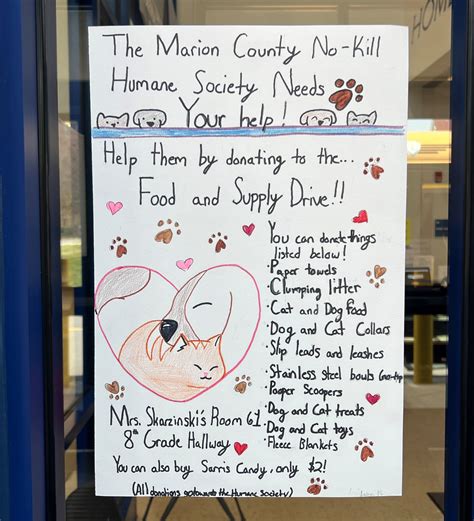 The Marion County No-Kill
Humane Society Needs
Your help!
Help them by donating to the...
Food and Supply Drive!!
You can donate things
listed below!
·Paper towels
·Clumping litter
·Cat and Dog food
·Dog and Cat Collars
·Slip leads and leashes
·Stainless Steel bowls
·Pooper Scoopers
·Dog and Cat treats
·Dog and Cat toys
·Fleece Blankets
Mrs. Skarzinski's Room 61
8th Grade Hallway
You can also buy Sarris Candy, only $2!
(All donations go towards the Humane Society)
HOME